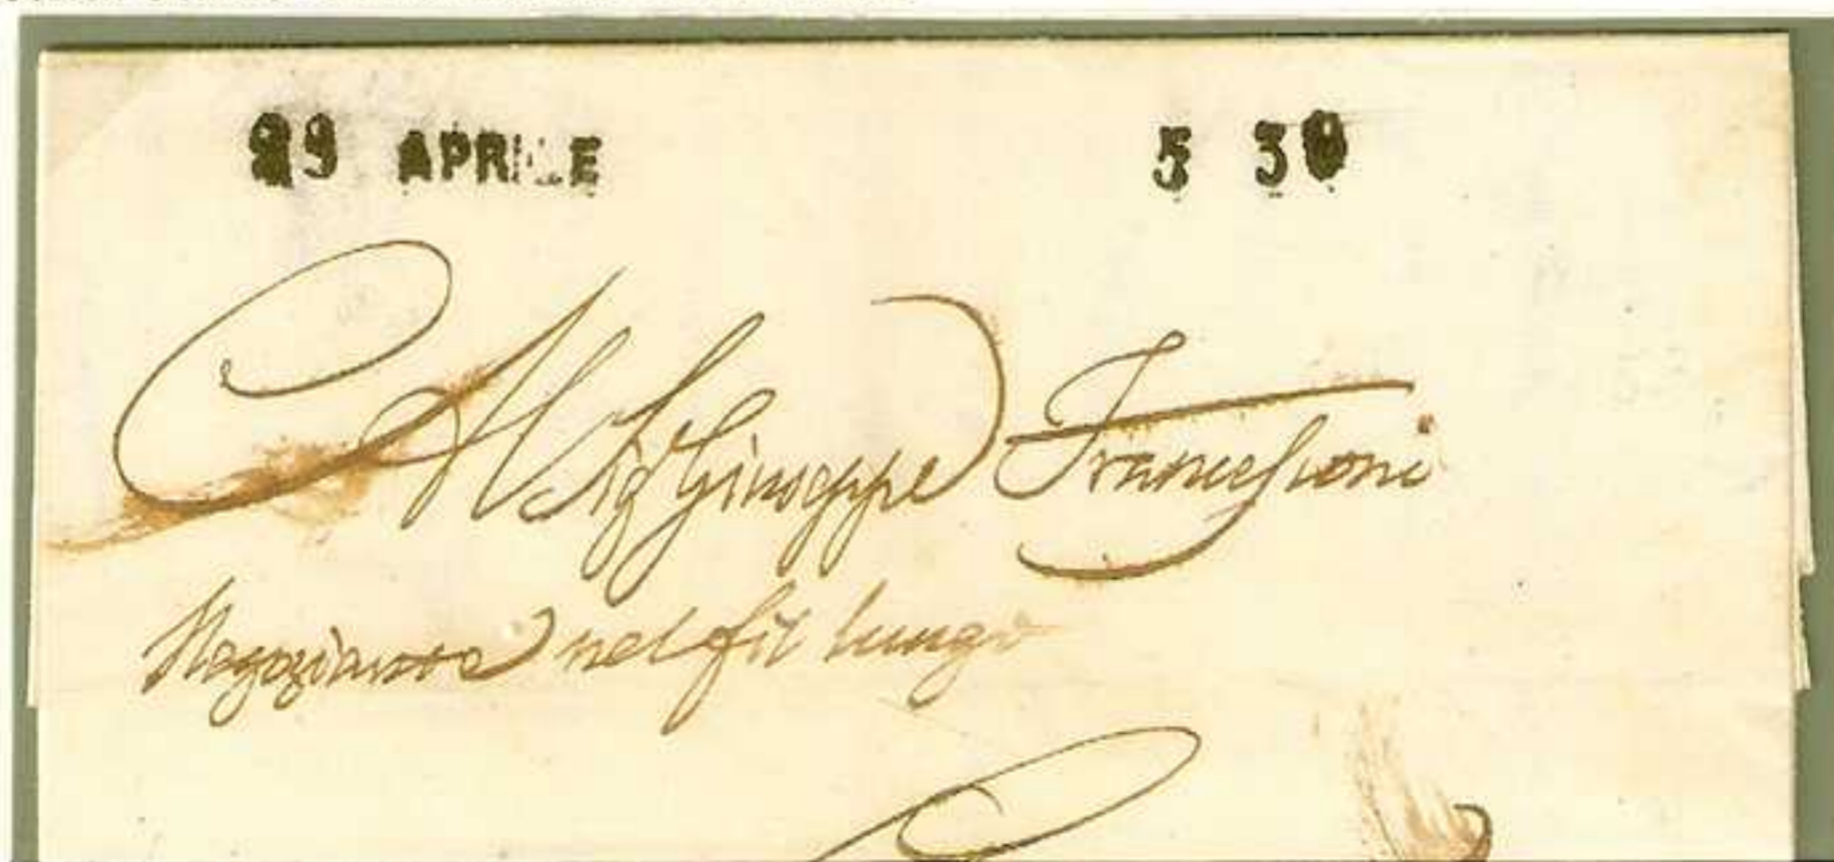 29 APRILE 5 30
Al Sig Giuseppe Franceschoni
Negoziante nel fil lungo